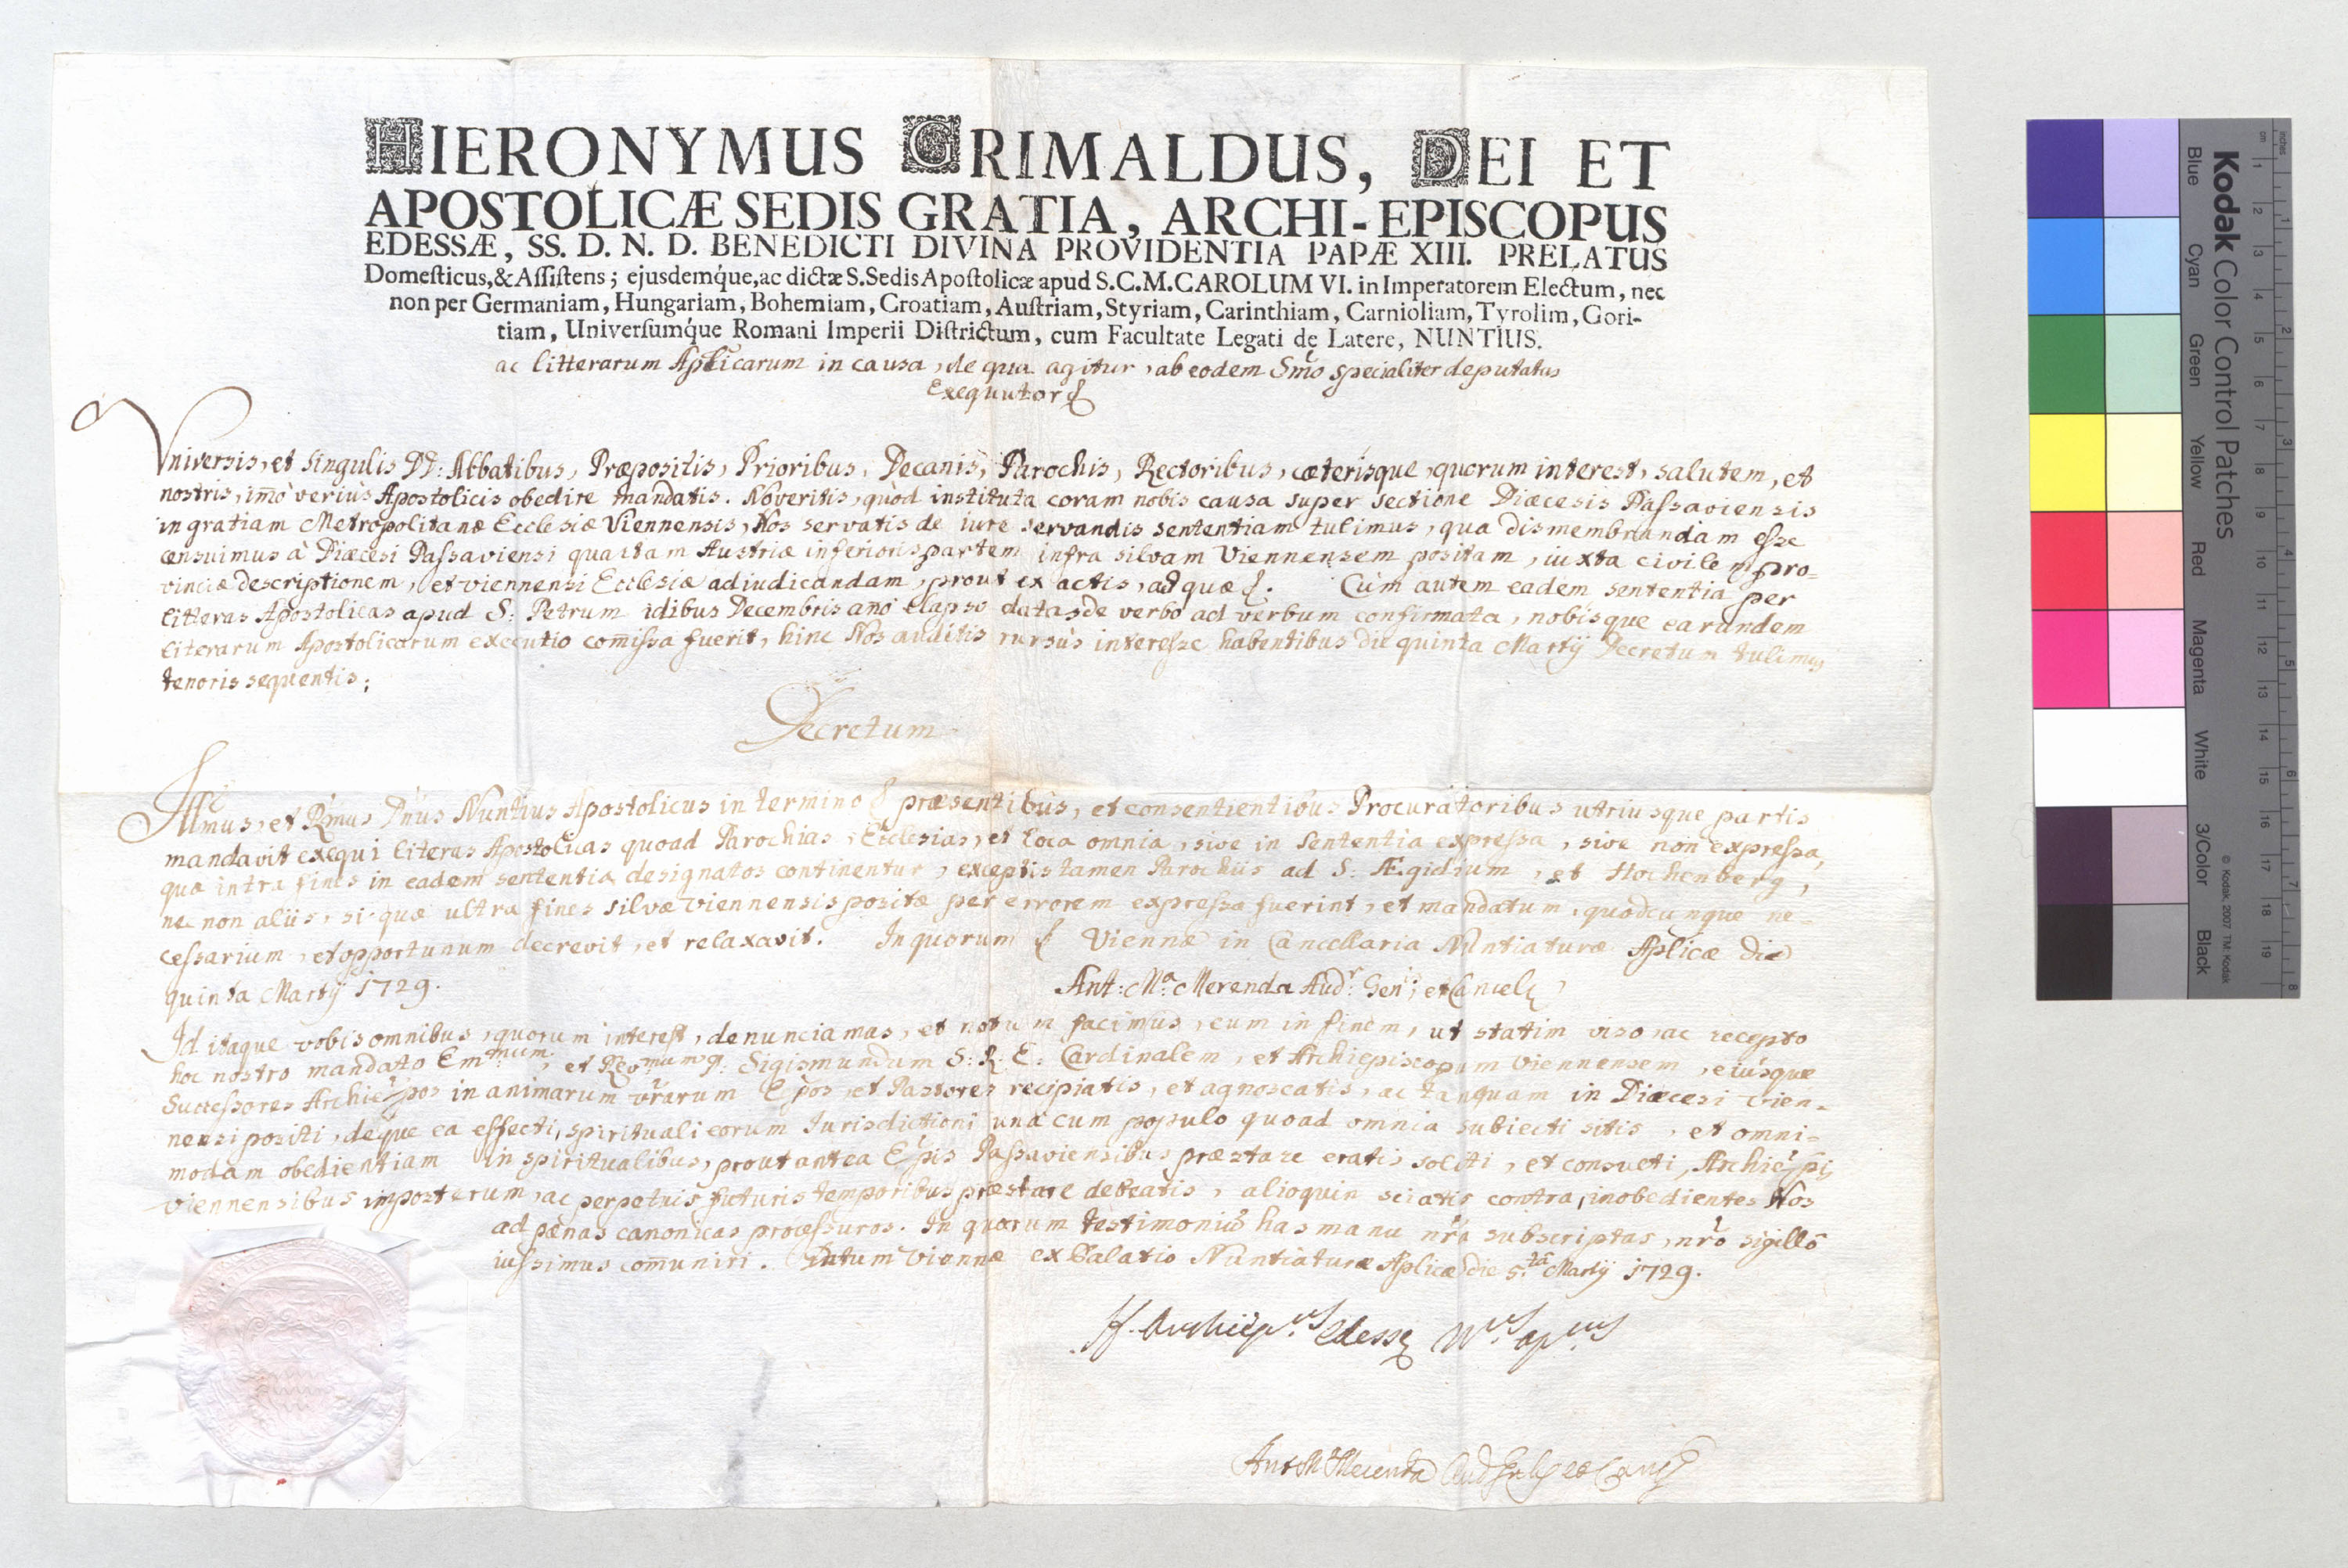 HIERONYMUS GRIMALDUS, DEI ET
APOSTOLICÆ SEDIS GRATIA, ARCHI-EPISCOPUS
EDESSÆ, SS. D. N. D. BENEDICTI DIVINA PROVIDENTIA PAPÆ XIII. PRELATUS
Domeſticus,&Aſſiſtens; ejusdemq́ue,ac dictæ S.Sedis Apoſtolicæ apud S.C.M.CAROLUM VI. in Imperatorem Electum, nec
non per Germaniam, Hungariam, Bohemiam, Croatiam, Auſtriam, Styriam, Carinthiam, Carnioliam, Tyrolim, Gori-
tiam, Univerſumq́ue Romani Imperii Diſtrictum, cum Facultate Legati de Latere, NUNTIUS.
ac litterarum Aplicarum in causa, de qua agitur, ab eodem Smo specialiter deputatus
Exequutor
Vniversis, et singulis DD: Abbatibus, Præpositis, Prioribus, Decanis, Parochis, Rectoribus, cæterisque, quorum interest, salutem, et
nostris, imò veriùs Apostolicis obedire mandatis. Noveritis, quòd instituta coram nobis causa super sectione Diæcesis Paſsaviensis
in gratiam Metropolitanæ Ecclesiæ Viennensis, Nos servatis de iure servandis sententiam tulimus, qua dismembrandam eſse
censuimus à Diæcesi Paſsaviensi quartam Austriæ inferioris partem infra silvam Viennensem positam, iuxta civilem pro=
vinciæ descriptionem, et viennensi Ecclesiæ adiudicandam, prout ex actis, ad quæ. Cùm autem eadem sententia per
litteras Apostolicas apud S: Petrum idibus Decembris año elapso datas de verbo ad verbum confirmata, nobisque earundem
literarum Apostolicarum executio comiſsa fuerit, hinc Nos auditis rursùs intereſse habentibus die quinta Martij Decretum tulimus
tenoris sequentis;
Decretum
Illmus, et Rmus Dñus Nuntius Apostolicus in termino præsentibus, et consentientibus Procuratoribus utriusque partis
mandavit exequi literas Apostolicas quoad Parochias, Ecclesias, et loca omnia, sive in sententia expreſsa, sive non expreſsa,
quæ intra fines in eadem sententia designatos continentur, exceptis tamen Parochiis ad S: Ægidium, et Hochenberg,
nec non aliis, si quæ ultra fines silvæ viennensis positæ per errorem expreſsa fuerint, et mandatum, quodcunque ne=
ceſsarium, et opportunum decrevit, et relaxavit. In quorum Viennæ in Cancellaria Nuntiaturæ Aplicæ die
quinta Martij 1729.
Ant: Ma. Merenda Audr. Genlis, et Cancel
Id itaque vobis omnibus, quorum interest, denunciamas, et notum facimus, eum in finem, ut statim viso, ac recepto
hoc nostro mandato Emmum, et Revmum D: Sigismundum S: R: E: Cardinalem, et Archiepiscopum Viennensem, eiusque
Succeſsores Archiepos in animarum vrarum Epos, et Pastores recipiatis, et agnoscatis, ac tanquam in Diæcesi vien=
nensi positi, deque ea effecti, spirituali eorum Iurisdictioni una cum populo quoad omnia subiecti sitis, et omni=
modam obedientiam in spiritualibus, prout antea Epis Paſsaviensibus præstare eratis soliti, et consueti, Archiepis
viennensibus imposterum, ac perpetuis futuris temporibus præstare debeatis, alioquin sciatis contra inobedientes Nos
ad pænas canonicas proceſsuros. In quorum testimoniũ has manu nrâ subscriptas, nrô sigillô
iuſsimus comuniri. Datum Viennæ ex Palatio Nuntiaturæ Aplicæ die 5.tâ Martij 1729.
H. Archiepus. Edesse Nus. apcus
Ant M Merenda Aud Gnlis et Canc